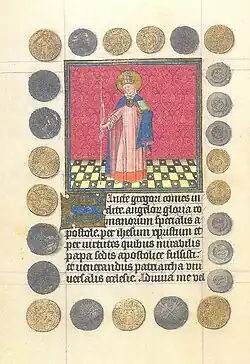 Ancte gregori comes in
clite. angelor gloria ro
manorum specialis a
postole. per ihesum xpistum et
per virtutes quibus mirabilis
papa sedis apostolice fulsisti.
et venerandus patriarcha vni
uersalis ecclesie. Adiuua me ve